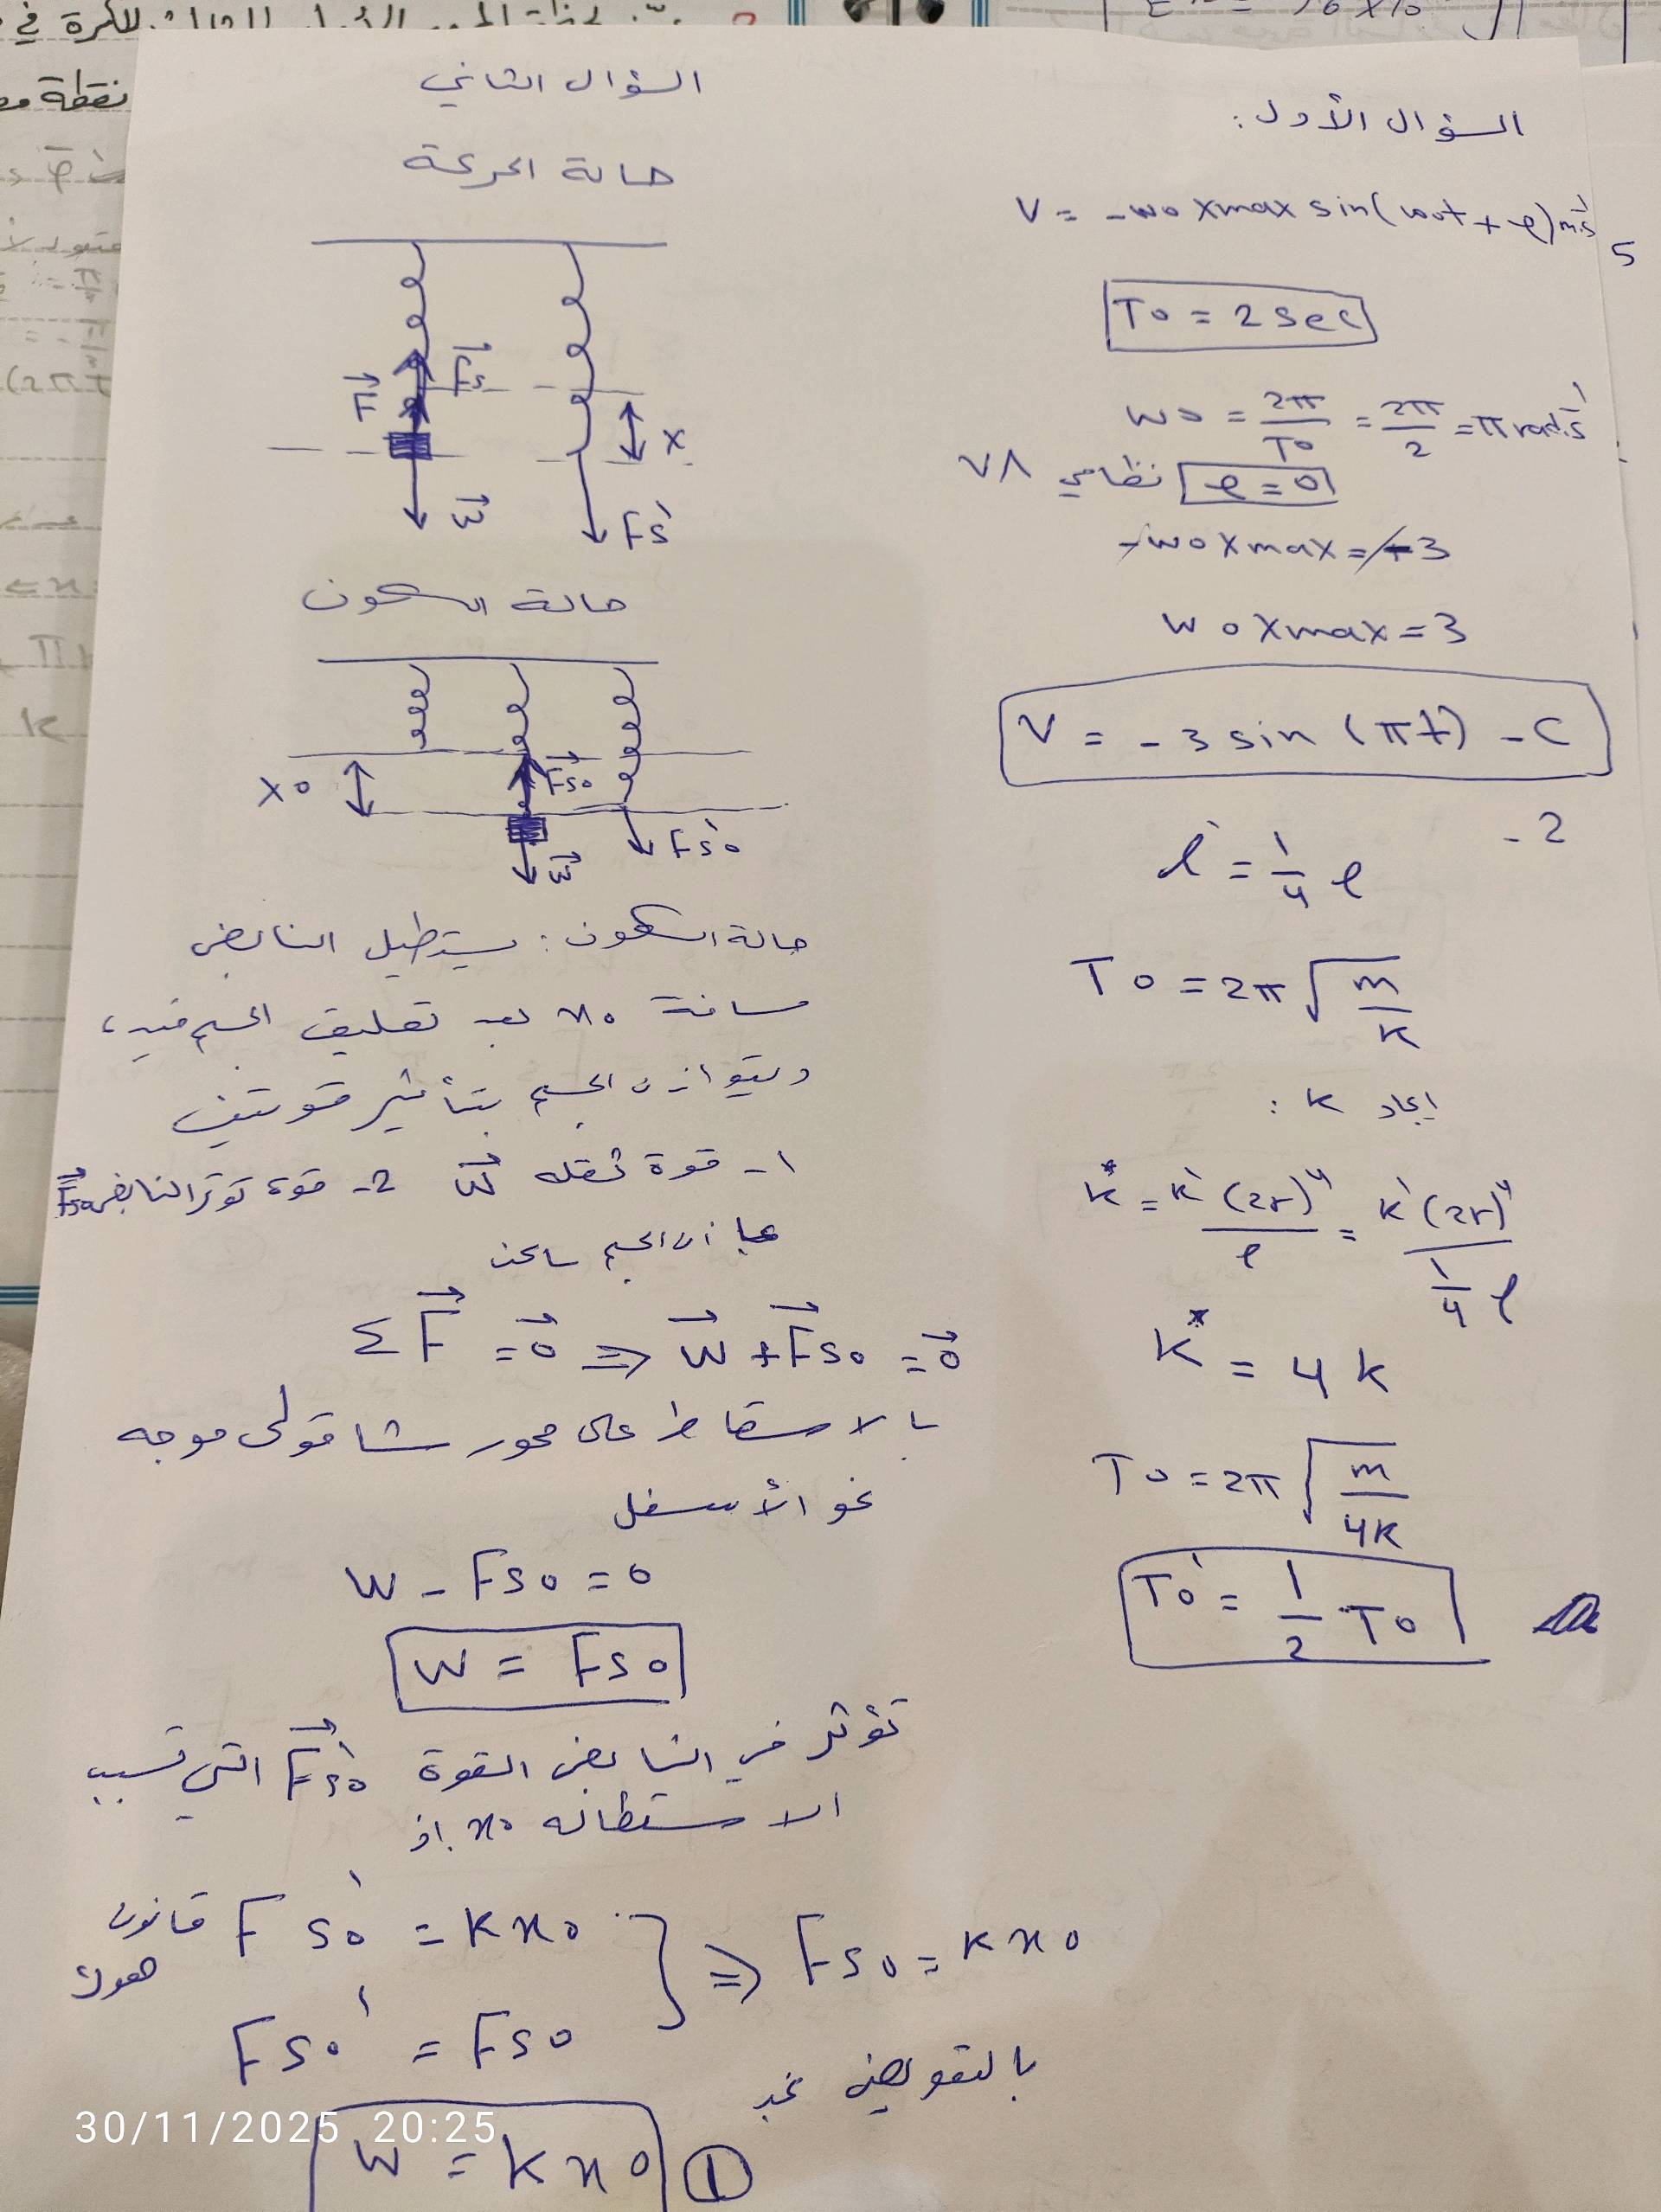 السؤال الأول:
V = -ω0 Xmax sin(ω0t + φ) m.s⁻¹
T0 = 2 sec
ω0 = 2π/T0 = 2π/2 = π rad.s⁻¹
φ = 0
-ω0 Xmax = -3
ω0 Xmax = 3
V = -3 sin (πt) - C
- 2
ℓ' = 1/4 ℓ
T0 = 2π √(m/k)
ايجاد k :
k* = k' (2r)⁴/ℓ = k' (2r)⁴/(1/4 ℓ)
k* = 4k
T0 = 2π √(m/4k)
T0' = 1/2 T0
السؤال الثاني
حالة الحركة
F
Fs
X
W
Fs'
حالة السكون
X0
Fs0
W
Fs'0
حالة السكون: يستطيل النابض
مسافة x0 بعد تعليق الجسم فيه،
ويتوازن الجسم بتأثير قوتين
١- قوة ثقله W 2- قوة توتر النابض Fs0
بما أن الجسم ساكن
ΣF = 0 ⇒ W + Fs0 = 0
بالاسقاط على محور شاقولي موجه
نحو الأسفل
W - Fs0 = 0
W = Fs0
تؤثر في النابض القوة Fs'0 التي تسبب
الاستطالة x0 إذ
قانون هوك Fs'0 = k x0
Fs0' = Fs0
⇒ Fs0 = k x0
بالتعويض نجد
W = k x0 ①
30/11/2025 20:25